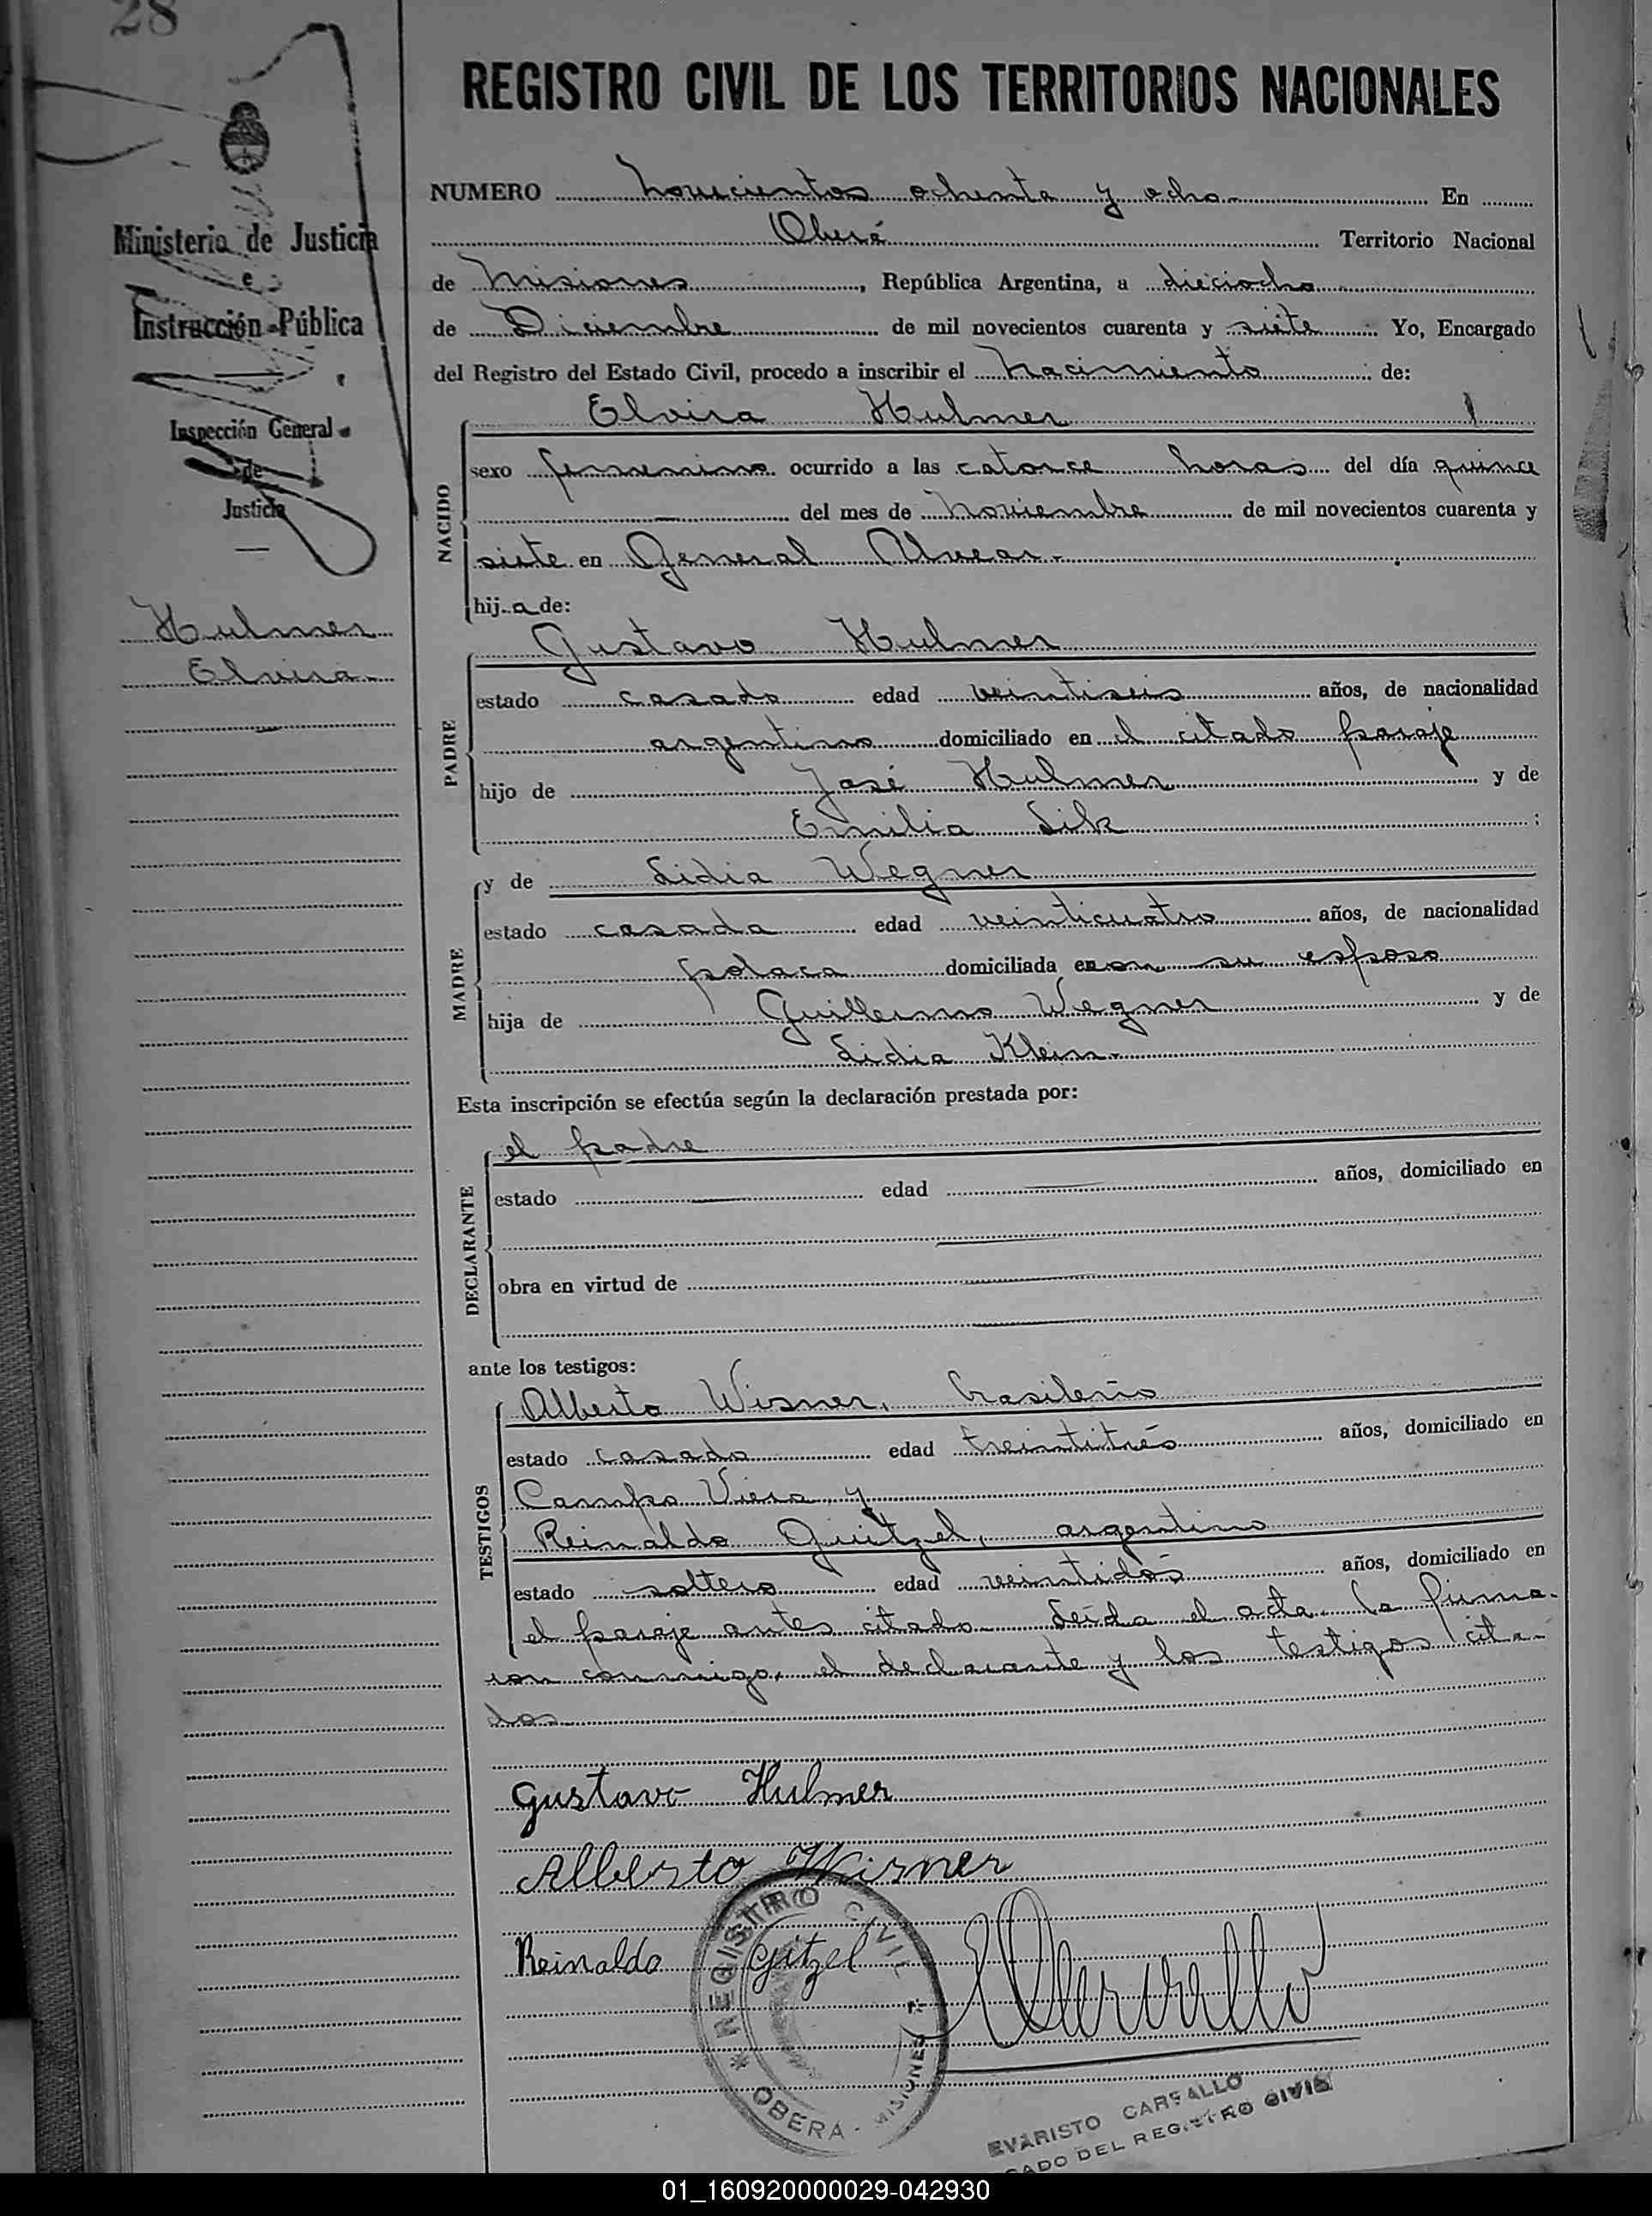 28
REGISTRO CIVIL DE LOS TERRITORIOS NACIONALES
Ministerio de Justicia
e
Instrucción Pública
Inspección General
de
Justicia
Hulmer
Elvira.-
NUMERO novecientos ochenta y ocho.- En
Oberá Territorio Nacional
de Misiones, República Argentina, a dieciocho
de Diciembre de mil novecientos cuarenta y siete. Yo, Encargado
del Registro del Estado Civil, procedo a inscribir el nacimiento de:
NACIDO
Elvira Hulmer
sexo femenino ocurrido a las catorce horas del día quince
del mes de noviembre de mil novecientos cuarenta y
siete en General Alvear.-
hija de:
PADRE
Gustavo Hulmer
estado casado edad veintiseis años, de nacionalidad
argentino domiciliado en el citado paraje
hijo de José Hulmer y de
Emilia Lik;
MADRE
y de Lidia Wegner
estado casada edad veinticuatro años, de nacionalidad
polaca domiciliada en con su esposo
hija de Guillermo Wegner y de
Lidia Klein.-
Esta inscripción se efectúa según la declaración prestada por:
DECLARANTE
el padre
estado edad años, domiciliado en
obra en virtud de
ante los testigos:
TESTIGOS
Alberto Wisner, brasileño
estado casado edad treintitrés años, domiciliado en
Campo Viera y
Reinaldo Guitzel, argentino
estado soltero edad veintidós años, domiciliado en
el paraje antes citado. Leída el acta la firma-
ron conmigo, el declarante y los testigos cita-
dos
Gustavo Hulmer
Alberto Wisner
Reinaldo Gitzel
REGISTRO CIVIL
* OBERA - MISIONES *
EVARISTO CARVALLO
DEL REGISTRO CIVIL
01_160920000029-042930